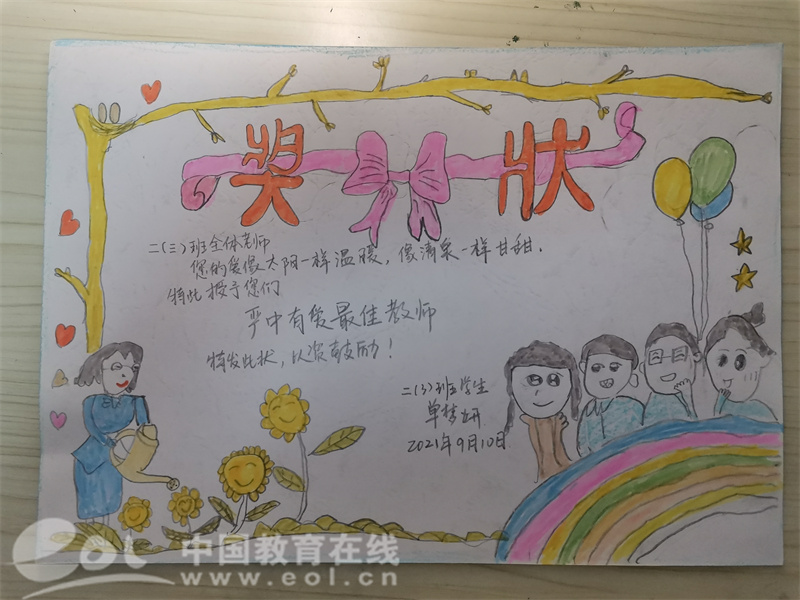 奖状
二(三)班全体老师
您的爱像太阳一样温暖，像清泉一样甘甜.
特此授予您们
严中有爱最佳教师
特发此状，以资鼓励！
二(3)班学生
单梦妍
2021年9月10日
eol 中国教育在线
www.eol.cn